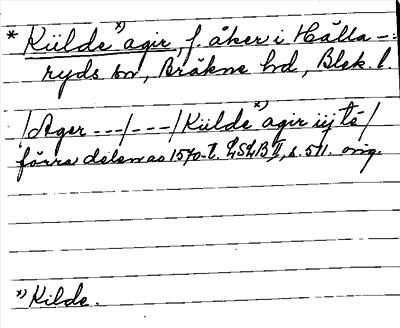 * Külde x) agir, f. åker i Hålla-
ryds sn, Bräkne hd, Blek. l.
/Ager ---/---/Külde x) agir iij te/
förra delen av 1570-t. LSLB II, s. 511. orig.
x) Kilde.